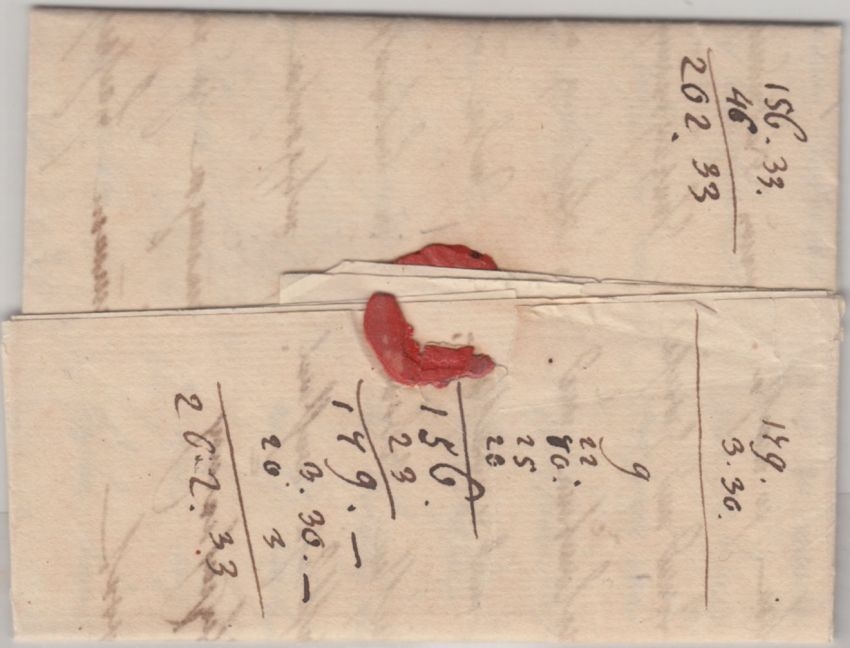 156. 33.
46
262. 33
149.
3. 30.
9
22
46.
25
28
156.
23
149. —
3. 30. —
20 3
262. 33